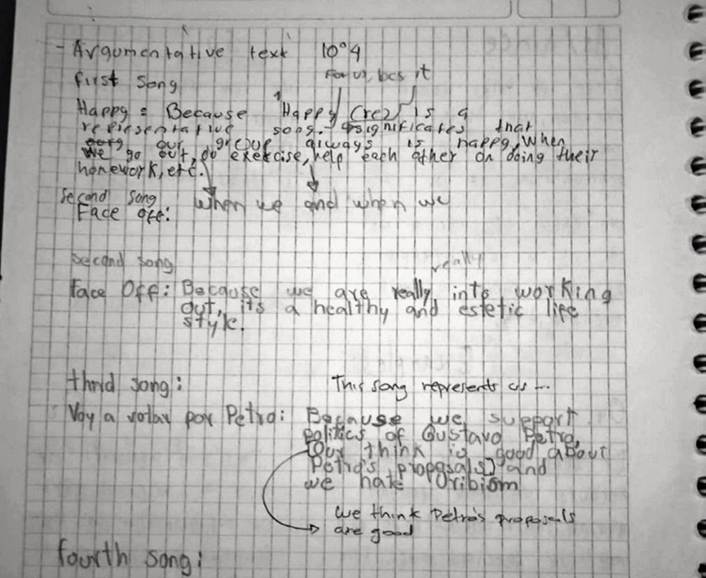 - Argumentative text 10°4
For us, bcs it
first song
Happy = Because "Happy (rc) is a
representative song. significates that
our group always is happy, when
we go out, do exercise, help each other on doing their
homework, etc.
second song when we and when we
Face off:
second song
really
Face Off: Because we are really into working
out, it's a healthy and estetic life
style.
thrid song: This song represents us ...
Voy a votar por Petro: Because we support
politics of Gustavo Petro,
Our think is good about
Petro's proposals) and
we hate Uribism
we think Petro's proposals
are good
fourth song: